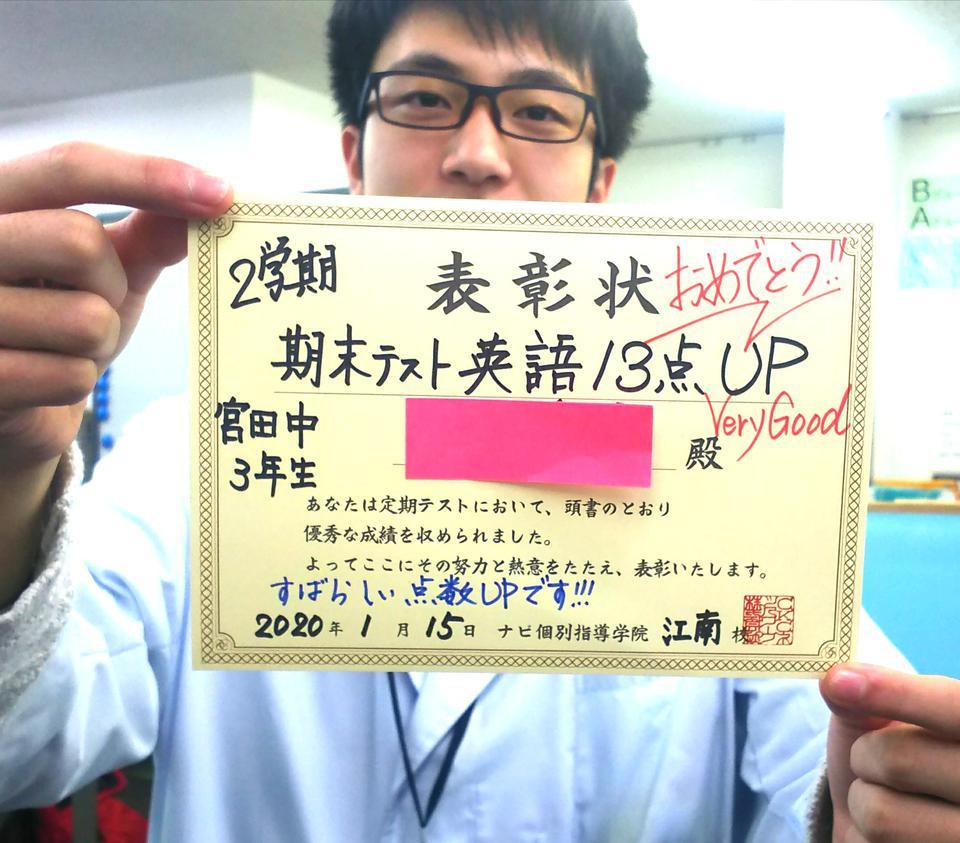 2学期
表彰状
おめでとう!!
期末テスト英語13点UP
Very Good
宮田中
3年生
殿
あなたは定期テストにおいて、頭書のとおり
優秀な成績を収められました。
よってここにその努力と熱意をたたえ、表彰いたします。
すばらしい点数UPです!!!
2020年1月15日 ナビ個別指導学院 江南校
B
A